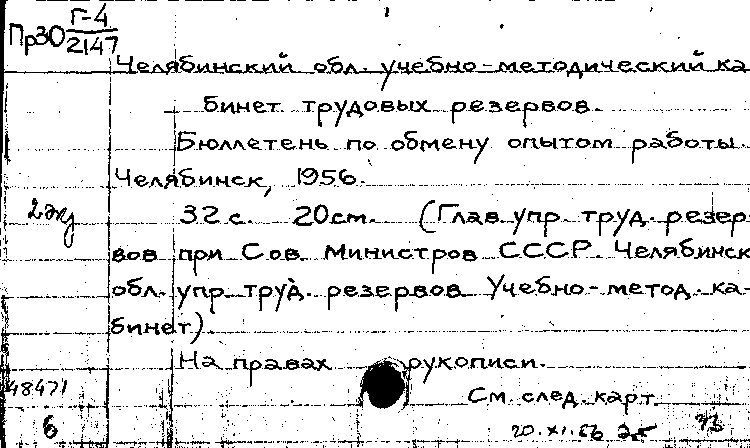 Пр30 Г-4
2147
Челябинский обл. учебно-методический ка
бинет трудовых резервов.
Бюллетень по обмену опытом работы.
Челябинск, 1956.
2 экз
32 с. 20 см. (Глав. упр. труд. резер
вов при Сов. Министров СССР. Челябинск
обл. упр. труд. резервов. Учебно-метод. ка-
бинет).
На правах рукописи.
48471
См. след. карт.
6
20.XI.66